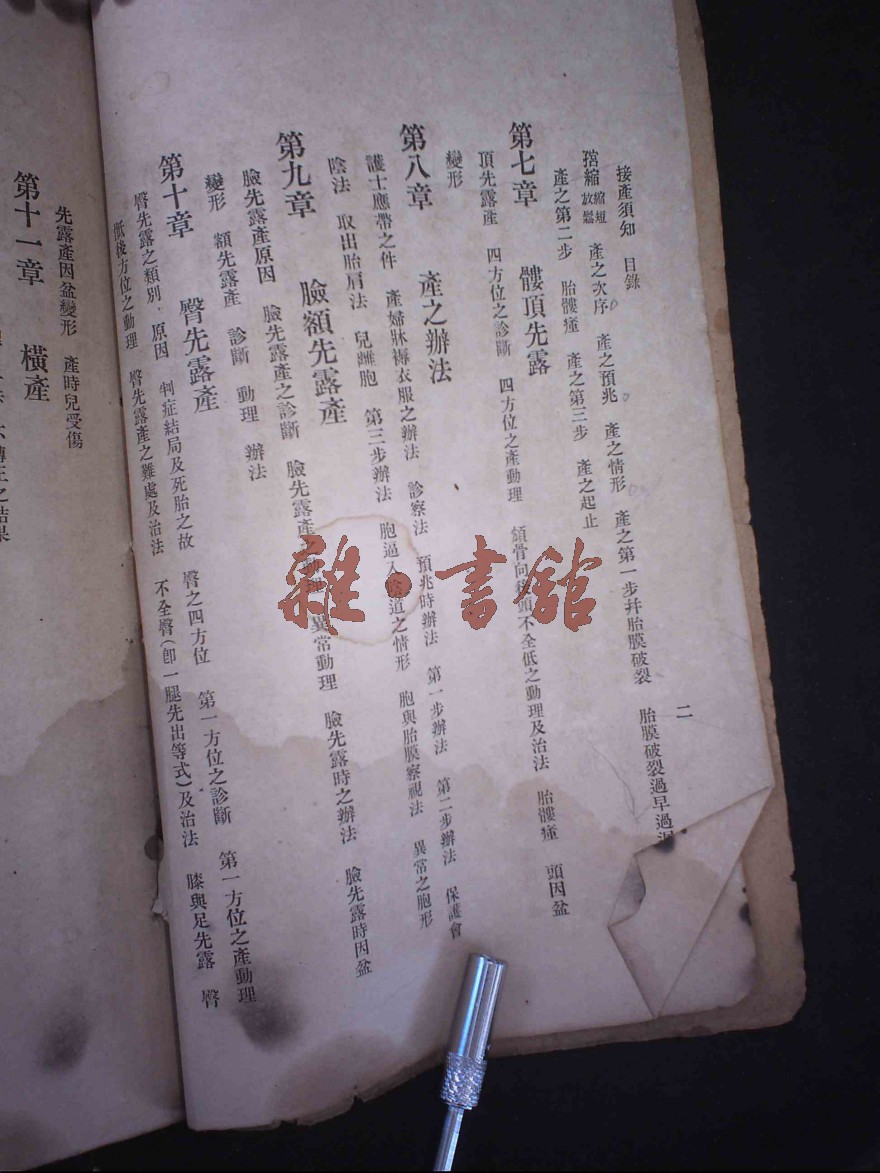 接產須知 目錄 二
產之次序 產之預兆 產之情形 產之第一步并胎膜破裂 胎膜破裂過早過
產之第二步 胎髏瘇 產之第三步 產之起止
第七章 髏頂先露
頂先露產 四方位之診斷 四方位之產動理 頷骨向 頭不全低之動理及治法 胎髏瘇 頭因盆
變形
第八章 產之辦法
護士應帶之件 產婦牀褥衣服之辦法 診察法 預兆時辦法 第一步辦法 第二步辦法 保護會
陰法 取出胎肩法 兒離胞 第三步辦法 胞逼入陰道之情形 胞與胎膜察視法 異常之胞形
第九章 臉額先露產
臉先露產原因 臉先露產之診斷 臉先露產之動理 異常動理 臉先露時之辦法 臉先露時因盆
變形 額先露產 診斷 動理 辦法
第十章 臀先露產
臀先露之類別 原因 判症結局及死胎之故 臀之四方位 第一方位之診斷 第一方位之產動理
骶後方位之動理 臀先露產之難處及治法 不全臀(卽一腿先出等式)及治法 膝與足先露 臀
先露產因盆變形 產時兒受傷
第十一章 橫產
雜·書館